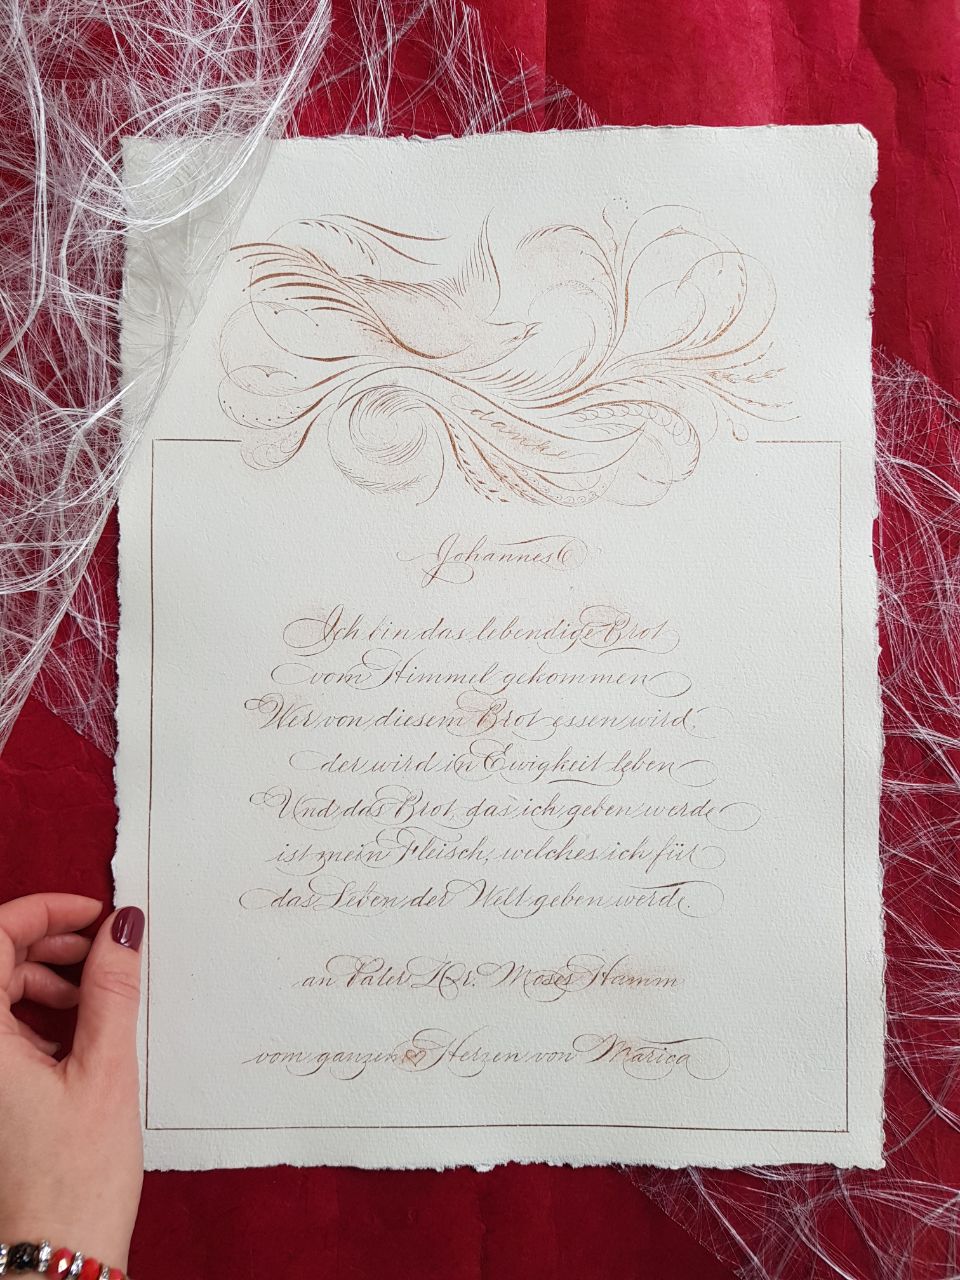 danke
Johannes 6
Ich bin das lebendige Brot
vom Himmel gekommen
Wer von diesem Brot essen wird,
der wird in Ewigkeit leben
Und das Brot, das ich geben werde
ist mein Fleisch, welches ich für
das Leben der Welt geben werde.
an Pater Hr. Moses Hamm
vom ganzen Herzen von Marica